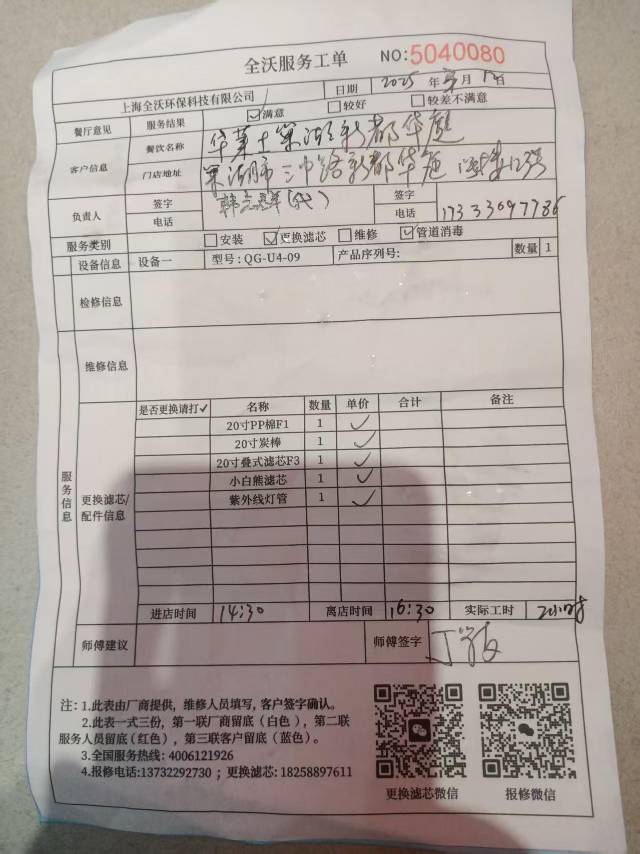 全沃服务工单 NO:5040080
上海全沃环保科技有限公司 日期 2025 年 月 日
餐厅意见 服务结果 ☑满意 □较好 □较差不满意
客户信息 餐饮名称 华莱士巢湖新都华庭
门店地址 巢湖市 路新都华庭
负责人 签字 签字
电话 电话 17333097786
服务类别 □安装 ☑更换滤芯 □维修 ☑管道消毒
设备信息 设备一 型号: QG-U4-09 产品序列号: 数量 1
检修信息
维修信息
服务信息
更换滤芯/配件信息
是否更换请打✓ 名称 数量 单价 合计 备注
20寸PP棉F1 1 ✓
20寸炭棒 1 ✓
20寸叠式滤芯F3 1 ✓
小白熊滤芯 1 ✓
紫外线灯管 1 ✓
进店时间 14:30 离店时间 16:30 实际工时 2小时
师傅建议 师傅签字
注: 1.此表由厂商提供，维修人员填写, 客户签字确认。
2.此表一式三份，第一联厂商留底 (白色)，第二联
服务人员留底(红色)，第三联客户留底（蓝色）。
3.全国服务热线: 4006121926
4.报修电话:13732292730 ; 更换滤芯: 18258897611
更换滤芯微信 报修微信